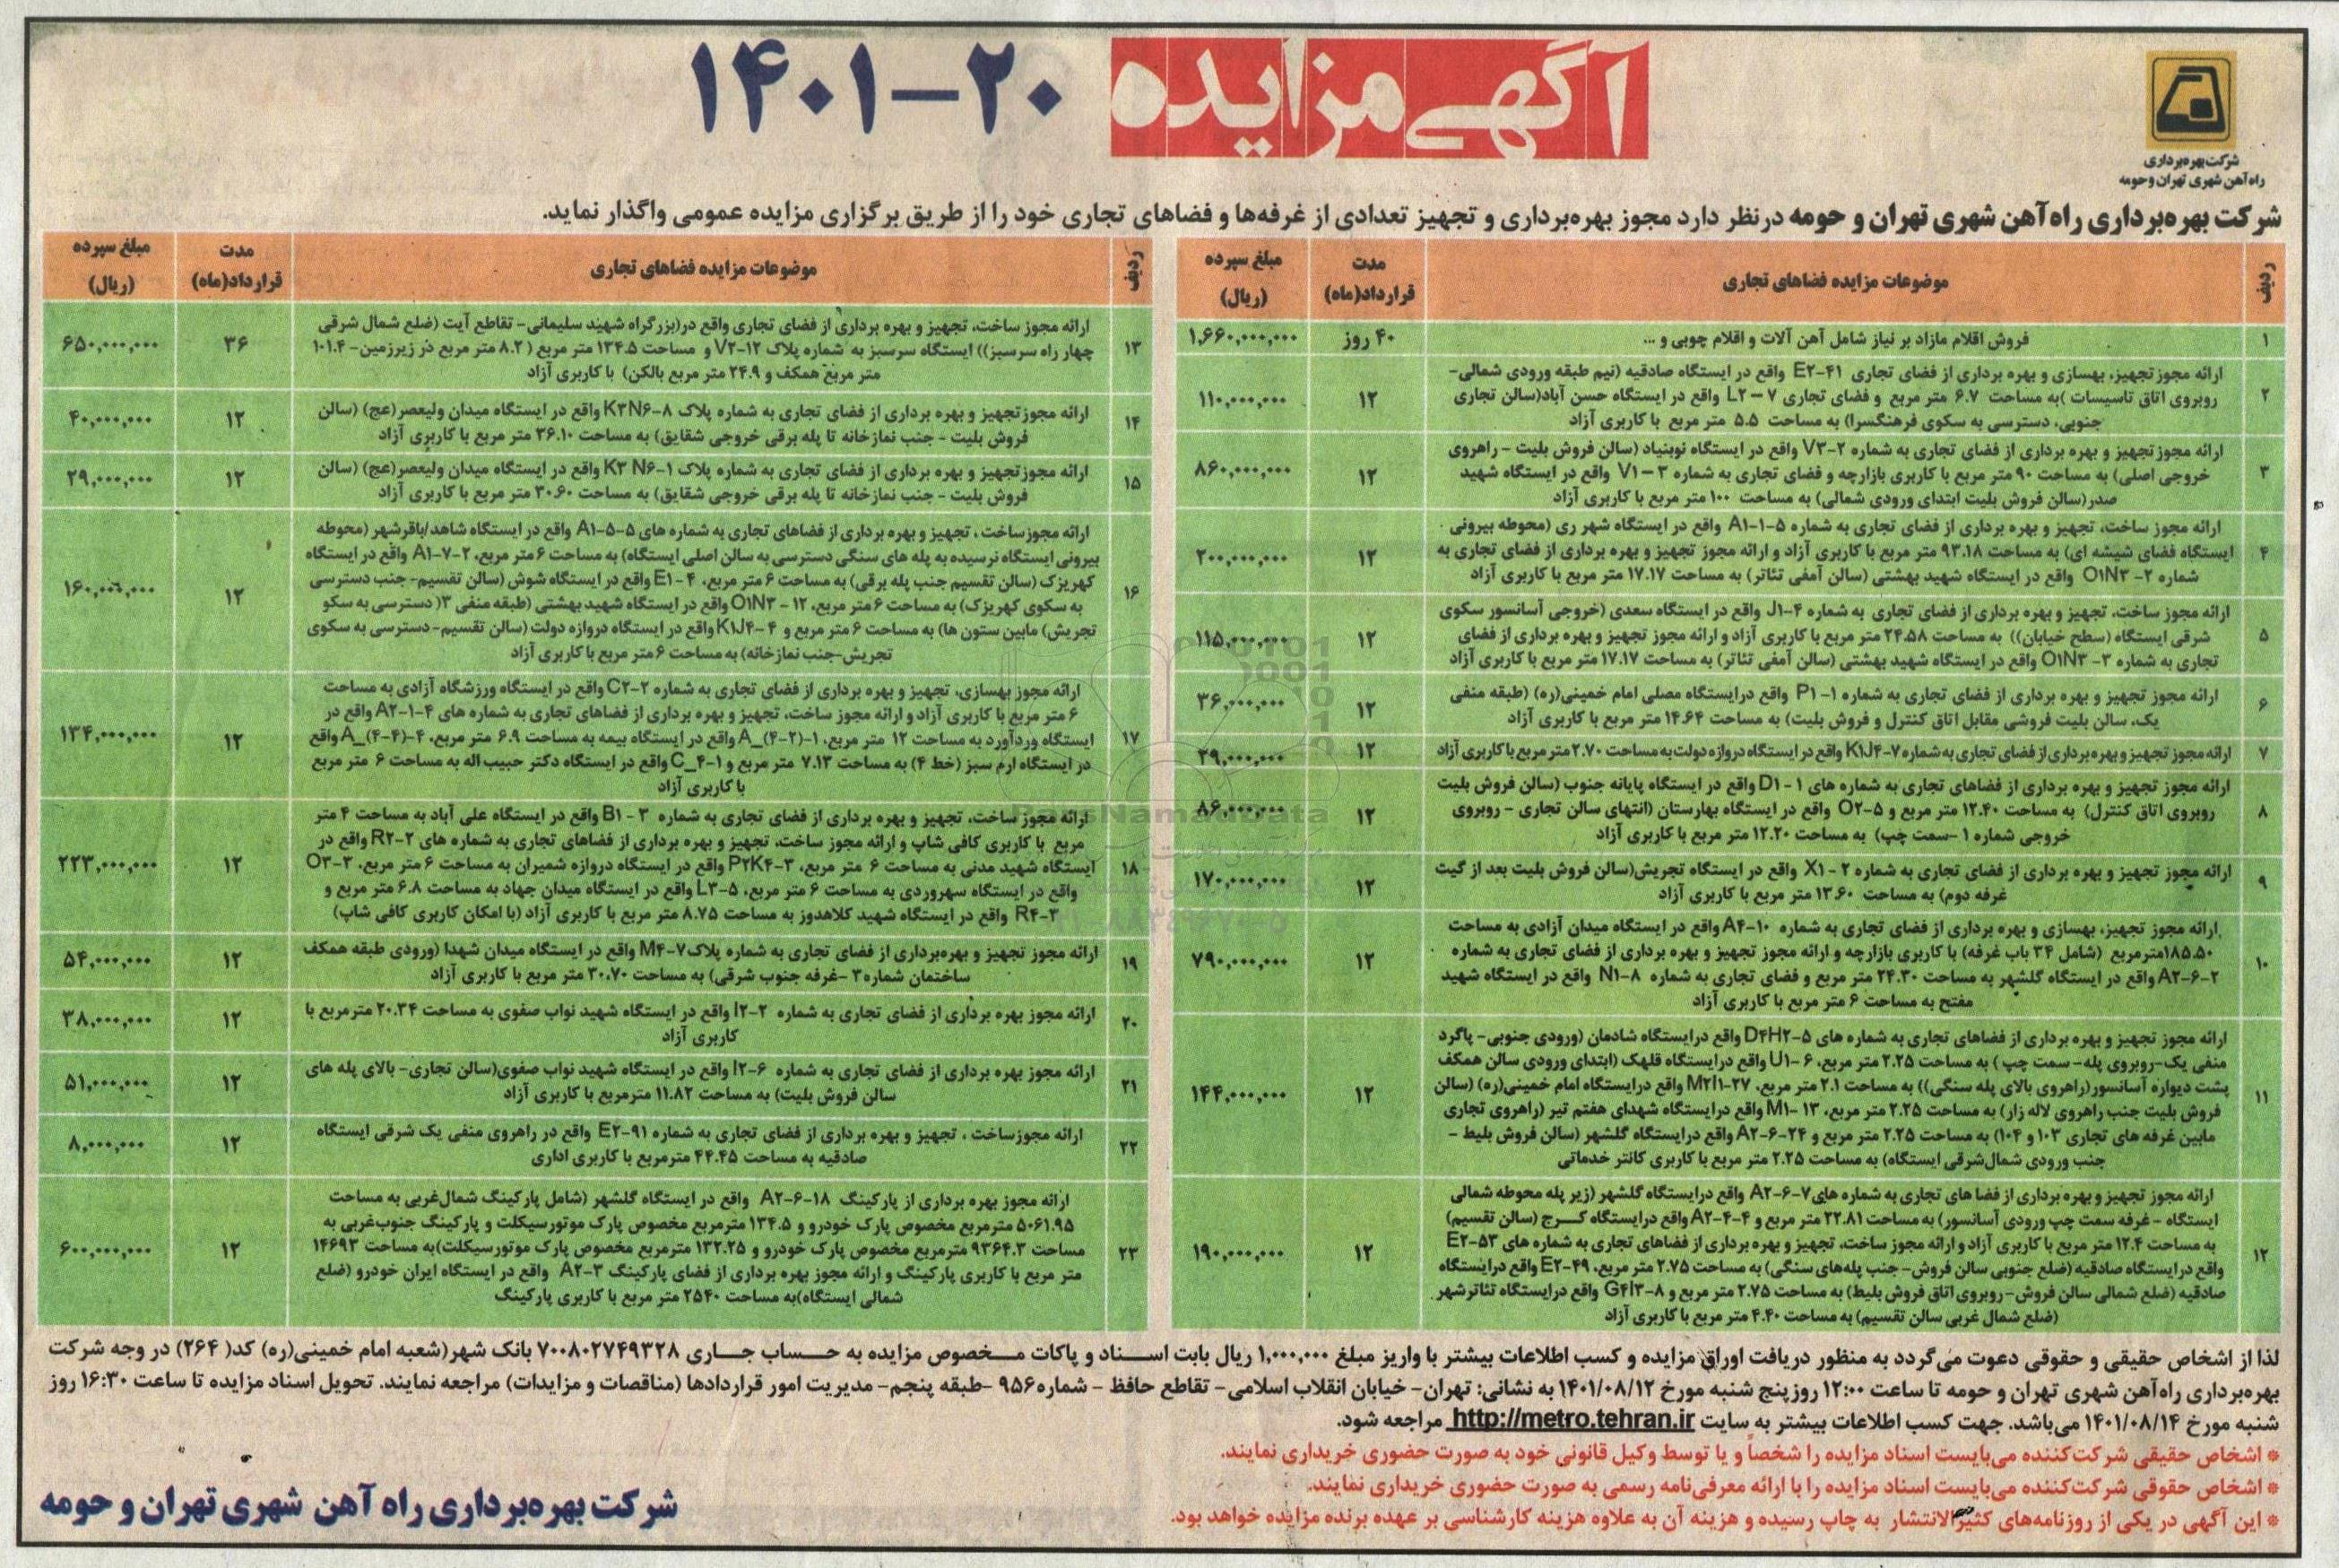 آگهی مزایده ۲۰-۱۴۰۱
شرکت بهره‌برداری
راه‌آهن شهری تهران و حومه
شرکت بهره‌برداری راه‌آهن شهری تهران و حومه درنظر دارد مجوز بهره‌برداری و تجهیز تعدادی از غرفه‌ها و فضاهای تجاری خود را از طریق برگزاری مزایده عمومی واگذار نماید.
ردیف موضوعات مزایده فضاهای تجاری مدت قرارداد(ماه) مبلغ سپرده (ریال)
۱ فروش اقلام مازاد بر نیاز شامل آهن آلات و اقلام چوبی و ... ۴۰ روز ۱,۶۶۰,۰۰۰,۰۰۰
۲ ارائه مجوز تجهیز، بهسازی و بهره برداری از فضای تجاری E۲-۴۱ واقع در ایستگاه صادقیه (نیم طبقه ورودی شمالی-
روبروی اتاق تاسیسات )به مساحت ۶.۷ متر مربع و فضای تجاری L۲-۷ واقع در ایستگاه حسن آباد(سالن تجاری
جنوبی، دسترسی به سکوی فرهنگسرا) به مساحت ۵.۵ متر مربع با کاربری آزاد ۱۲ ۱۱۰,۰۰۰,۰۰۰
۳ ارائه مجوز تجهیز و بهره برداری از فضای تجاری به شماره V۳-۲ واقع در ایستگاه نوبنیاد (سالن فروش بلیت - راهروی
خروجی اصلی) به مساحت ۹۰ متر مربع با کاربری بازارچه و فضای تجاری به شماره V۱-۳ واقع در ایستگاه شهید
صدر(سالن فروش بلیت ابتدای ورودی شمالی) به مساحت ۱۰۰ متر مربع با کاربری آزاد ۱۲ ۸۶۰,۰۰۰,۰۰۰
۴ ارائه مجوز ساخت، تجهیز و بهره برداری از فضای تجاری به شماره A۱-۱-۵ واقع در ایستگاه شهر ری (محوطه بیرونی
ایستگاه فضای شیشه ای) به مساحت ۹۳.۱۸ متر مربع با کاربری آزاد و ارائه مجوز تجهیز و بهره برداری از فضای تجاری به
شماره O۱N۳ -۲ واقع در ایستگاه شهید بهشتی (سالن آمفی تئاتر) به مساحت ۱۷.۱۷ متر مربع با کاربری آزاد ۱۲ ۲۰۰,۰۰۰,۰۰۰
۵ ارائه مجوز ساخت، تجهیز و بهره برداری از فضای تجاری به شماره J۱-۴ واقع در ایستگاه سعدی (خروجی آسانسور سکوی
شرقی ایستگاه (سطح خیابان)) به مساحت ۲۴.۵۸ متر مربع با کاربری آزاد و ارائه مجوز تجهیز و بهره برداری از فضای
تجاری به شماره O۱N۳ -۳ واقع در ایستگاه شهید بهشتی (سالن آمفی تئاتر) به مساحت ۱۷.۱۷ متر مربع با کاربری آزاد ۱۲ ۱۱۵,۰۰۰,۰۰۰
۶ ارائه مجوز تجهیز و بهره برداری از فضای تجاری به شماره P۱-۱ واقع درایستگاه مصلی امام خمینی(ره) (طبقه منفی
یک، سالن بلیت فروشی مقابل اتاق کنترل و فروش بلیت) به مساحت ۱۴.۶۴ متر مربع با کاربری آزاد ۱۲ ۳۶,۰۰۰,۰۰۰
۷ ارائه مجوز تجهیز و بهره برداری از فضای تجاری به شماره K۱J۴-۷ واقع در ایستگاه دروازه دولت به مساحت ۲.۷۰ متر مربع با کاربری آزاد ۱۲ ۲۹,۰۰۰,۰۰۰
۸ ارائه مجوز تجهیز و بهره برداری از فضاهای تجاری به شماره های D۱-۱ واقع در ایستگاه پایانه جنوب (سالن فروش بلیت
روبروی اتاق کنترل) به مساحت ۱۲.۴۰ متر مربع و O۲-۵ واقع در ایستگاه بهارستان (انتهای سالن تجاری - روبروی
خروجی شماره ۱ -سمت چپ) به مساحت ۱۲.۲۰ متر مربع با کاربری آزاد ۱۲ ۸۶,۰۰۰,۰۰۰
۹ ارائه مجوز تجهیز و بهره برداری از فضای تجاری به شماره X۱-۲ واقع در ایستگاه تجریش(سالن فروش بلیت بعد از گیت
غرفه دوم) به مساحت ۱۳.۶۰ متر مربع با کاربری آزاد ۱۲ ۱۷۰,۰۰۰,۰۰۰
۱۰ ارائه مجوز تجهیز، بهسازی و بهره برداری از فضای تجاری به شماره A۴-۱۰ واقع در ایستگاه میدان آزادی به مساحت
۱۸۵.۵۰مترمربع (شامل ۳۴ باب غرفه) با کاربری بازارچه و ارائه مجوز تجهیز و بهره برداری از فضای تجاری به شماره
A۲-۶-۲ واقع در ایستگاه گلشهر به مساحت ۲۴.۳۰ متر مربع و فضای تجاری به شماره N۱-۸ واقع در ایستگاه شهید
مفتح به مساحت ۶ متر مربع با کاربری آزاد ۱۲ ۷۹۰,۰۰۰,۰۰۰
۱۱ ارائه مجوز تجهیز و بهره برداری از فضاهای تجاری به شماره های D۴H۲-۵ واقع درایستگاه شادمان (ورودی جنوبی- پاگرد
منفی یک-روبروی پله- سمت چپ ) به مساحت ۲.۲۵ متر مربع، U۱-۶ واقع درایستگاه قلهک (ابتدای ورودی سالن همکف
پشت دیواره آسانسور(راهروی بالای پله سنگی)) به مساحت ۲.۱ متر مربع، M۲I۱-۲۷ واقع درایستگاه امام خمینی(ره) (سالن
فروش بلیت جنب راهروی لاله زار) به مساحت ۲.۲۵ متر مربع، M۱-۱۳ واقع درایستگاه شهدای هفتم تیر (راهروی تجاری
مابین غرفه های تجاری ۱۰۳ و ۱۰۴) به مساحت ۲.۲۵ متر مربع و A۲-۶-۲۴ واقع درایستگاه گلشهر (سالن فروش بلیط -
جنب ورودی شمال‌شرقی ایستگاه) به مساحت ۲.۲۵ متر مربع با کاربری کانتر خدماتی ۱۲ ۱۴۴,۰۰۰,۰۰۰
۱۲ ارائه مجوز تجهیز و بهره برداری از فضا های تجاری به شماره های A۲-۶-۷ واقع درایستگاه گلشهر (زیر پله محوطه شمالی
ایستگاه - غرفه سمت چپ ورودی آسانسور) به مساحت ۲۲.۸۱ متر مربع و A۲-۴-۴ واقع درایستگاه کرج (سالن تقسیم)
به مساحت ۱۲.۴ متر مربع با کاربری آزاد و ارائه مجوز ساخت، تجهیز و بهره برداری از فضاهای تجاری به شماره های E۲-۵۳
واقع درایستگاه صادقیه (ضلع جنوبی سالن فروش- جنب پله‌های سنگی) به مساحت ۲.۷۵ متر مربع، E۲-۴۹ واقع درایستگاه
صادقیه (ضلع شمالی سالن فروش-روبروی اتاق فروش بلیط) به مساحت ۲.۷۵ متر مربع و G۴I۳-۸ واقع درایستگاه تئاترشهر
(ضلع شمال غربی سالن تقسیم) به مساحت ۴.۴۰ متر مربع با کاربری آزاد ۱۲ ۱۹۰,۰۰۰,۰۰۰
ردیف موضوعات مزایده فضاهای تجاری مدت قرارداد(ماه) مبلغ سپرده (ریال)
۱۳ ارائه مجوز ساخت، تجهیز و بهره برداری از فضای تجاری واقع در(بزرگراه شهید سلیمانی- تقاطع آیت (ضلع شمال شرقی
چهار راه سرسبز)) ایستگاه سرسبز به شماره پلاک V۲-۱۲ و مساحت ۱۳۴.۵ متر مربع ( ۸.۲ متر مربع در زیرزمین- ۱۰۱.۴
متر مربع همکف و ۲۴.۹ متر مربع بالکن) با کاربری آزاد ۳۶ ۶۵۰,۰۰۰,۰۰۰
۱۴ ارائه مجوزتجهیز و بهره برداری از فضای تجاری به شماره پلاک K۳N۶-۸ واقع در ایستگاه میدان ولیعصر(عج) (سالن
فروش بلیت - جنب نمازخانه تا پله برقی خروجی شقایق) به مساحت ۳۶.۱۰ متر مربع با کاربری آزاد ۱۲ ۴۰,۰۰۰,۰۰۰
۱۵ ارائه مجوزتجهیز و بهره برداری از فضای تجاری به شماره پلاک K۳ N۶-۱ واقع در ایستگاه میدان ولیعصر(عج) (سالن
فروش بلیت - جنب نمازخانه تا پله برقی خروجی شقایق) به مساحت ۳۰.۶۰ متر مربع با کاربری آزاد ۱۲ ۲۹,۰۰۰,۰۰۰
۱۶ ارائه مجوزساخت ، تجهیز و بهره برداری از فضاهای تجاری به شماره های A۱-۵-۵ واقع در ایستگاه شاهد/باقرشهر (محوطه
بیرونی ایستگاه نرسیده به پله های سنگی دسترسی به سالن اصلی ایستگاه) به مساحت ۶ متر مربع، A۱-۷-۲ واقع در ایستگاه
کهریزک (سالن تقسیم جنب پله برقی) به مساحت ۶ متر مربع، E۱-۴ واقع در ایستگاه شوش (سالن تقسیم- جنب دسترسی
به سکوی کهریزک) به مساحت ۶ متر مربع، O۱N۳ - ۱۲ واقع در ایستگاه شهید بهشتی (طبقه منفی ۳( دسترسی به سکو
تجریش) مابین ستون ها) به مساحت ۶ متر مربع و K۱J۴-۴ واقع در ایستگاه دروازه دولت (سالن تقسیم- دسترسی به سکوی
تجریش-جنب نمازخانه) به مساحت ۶ متر مربع با کاربری آزاد ۱۲ ۱۶۰,۰۰۰,۰۰۰
۱۷ ارائه مجوز بهسازی، تجهیز و بهره برداری از فضای تجاری به شماره C۲-۲ واقع در ایستگاه ورزشگاه آزادی به مساحت
۶ متر مربع با کاربری آزاد و ارائه مجوز ساخت، تجهیز و بهره برداری از فضاهای تجاری به شماره های A۲-۱-۴ واقع در
ایستگاه وردآورد به مساحت ۱۲ متر مربع، A_(۴-۲)-۱ واقع در ایستگاه بیمه به مساحت ۶.۹ متر مربع، A_(۴-۴)-۴ واقع
در ایستگاه ارم سبز (خط ۴) به مساحت ۷.۱۳ متر مربع و C_۴-۱ واقع در ایستگاه دکتر حبیب اله به مساحت ۶ متر مربع
با کاربری آزاد ۱۲ ۱۳۴,۰۰۰,۰۰۰
۱۸ ارائه مجوز ساخت، تجهیز و بهره برداری از فضای تجاری به شماره B۱-۳ واقع در ایستگاه علی آباد به مساحت ۴ متر
مربع با کاربری کافی شاپ و ارائه مجوز ساخت، تجهیز و بهره برداری از فضاهای تجاری به شماره های R۲-۲ واقع در
ایستگاه شهید مدنی به مساحت ۶ متر مربع، P۲K۴-۳ واقع در ایستگاه دروازه شمیران به مساحت ۶ متر مربع، O۳-۳
واقع در ایستگاه سهروردی به مساحت ۶ متر مربع، L۳-۵ واقع در ایستگاه میدان جهاد به مساحت ۶.۸ متر مربع و
R۴-۳ واقع در ایستگاه شهید کلاهدوز به مساحت ۸.۷۵ متر مربع با کاربری آزاد (با امکان کاربری کافی شاپ) ۱۲ ۲۲۳,۰۰۰,۰۰۰
۱۹ ارائه مجوز تجهیز و بهره‌برداری از فضای تجاری به شماره پلاک M۴-۷ واقع در ایستگاه میدان شهدا (ورودی طبقه همکف
ساختمان شماره۳ -غرفه جنوب شرقی) به مساحت ۳۰.۷۰ متر مربع با کاربری آزاد ۱۲ ۵۴,۰۰۰,۰۰۰
۲۰ ارائه مجوز بهره برداری از فضای تجاری به شماره I۲-۲ واقع در ایستگاه شهید نواب صفوی به مساحت ۲۰.۳۴ مترمربع با
کاربری آزاد ۱۲ ۳۸,۰۰۰,۰۰۰
۲۱ ارائه مجوز بهره برداری از فضای تجاری به شماره I۲-۶ واقع در ایستگاه شهید نواب صفوی(سالن تجاری- بالای پله های
سالن فروش بلیت) به مساحت ۱۱.۸۲ مترمربع با کاربری آزاد ۱۲ ۵۱,۰۰۰,۰۰۰
۲۲ ارائه مجوزساخت ، تجهیز و بهره برداری از فضای تجاری به شماره E۲-۹۱ واقع در راهروی منفی یک شرقی ایستگاه
صادقیه به مساحت ۴۴.۴۵ مترمربع با کاربری اداری ۱۲ ۸,۰۰۰,۰۰۰
۲۳ ارائه مجوز بهره برداری از پارکینگ A۲-۶-۱۸ واقع در ایستگاه گلشهر (شامل پارکینگ شمال‌غربی به مساحت
۵۰۶۱.۹۵ مترمربع مخصوص پارک خودرو و ۱۳۴.۵ مترمربع مخصوص پارک موتورسیکلت و پارکینگ جنوب‌غربی به
مساحت ۹۳۶۴.۳ مترمربع مخصوص پارک خودرو و ۱۳۲.۲۵ مترمربع مخصوص پارک موتورسیکلت)به مساحت ۱۴۶۹۳
متر مربع با کاربری پارکینگ و ارائه مجوز بهره برداری از فضای پارکینگ A۲-۳ واقع در ایستگاه ایران خودرو (ضلع
شمالی ایستگاه)به مساحت ۲۵۴۰ متر مربع با کاربری پارکینگ ۱۲ ۶۰۰,۰۰۰,۰۰۰
لذا از اشخاص حقیقی و حقوقی دعوت می‌گردد به منظور دریافت اوراق مزایده و کسب اطلاعات بیشتر با واریز مبلغ ۱,۰۰۰,۰۰۰ ریال بابت اسناد و پاکات مخصوص مزایده به حساب جاری ۷۰۰۸۰۲۷۴۹۳۲۸ بانک شهر(شعبه امام خمینی(ره) کد( ۲۶۴) در وجه شرکت
بهره‌برداری راه‌آهن شهری تهران و حومه تا ساعت ۱۲:۰۰ روز پنج شنبه مورخ ۱۴۰۱/۰۸/۱۲ به نشانی: تهران- خیابان انقلاب اسلامی- تقاطع حافظ - شماره ۹۵۶ -طبقه پنجم- مدیریت امور قراردادها (مناقصات و مزایدات) مراجعه نمایند. تحویل اسناد مزایده تا ساعت ۱۶:۳۰ روز
شنبه مورخ ۱۴۰۱/۰۸/۱۴ می‌باشد. جهت کسب اطلاعات بیشتر به سایت http://metro.tehran.ir مراجعه شود.
* اشخاص حقیقی شرکت‌کننده می‌بایست اسناد مزایده را شخصاً و یا توسط وکیل قانونی خود به صورت حضوری خریداری نمایند.
* اشخاص حقوقی شرکت‌کننده می‌بایست اسناد مزایده را با ارائه معرفی‌نامه رسمی به صورت حضوری خریداری نمایند.
* این آگهی در یکی از روزنامه‌های کثیرالانتشار به چاپ رسیده و هزینه آن به علاوه هزینه کارشناسی بر عهده برنده مزایده خواهد بود.
شرکت بهره‌برداری راه آهن شهری تهران و حومه